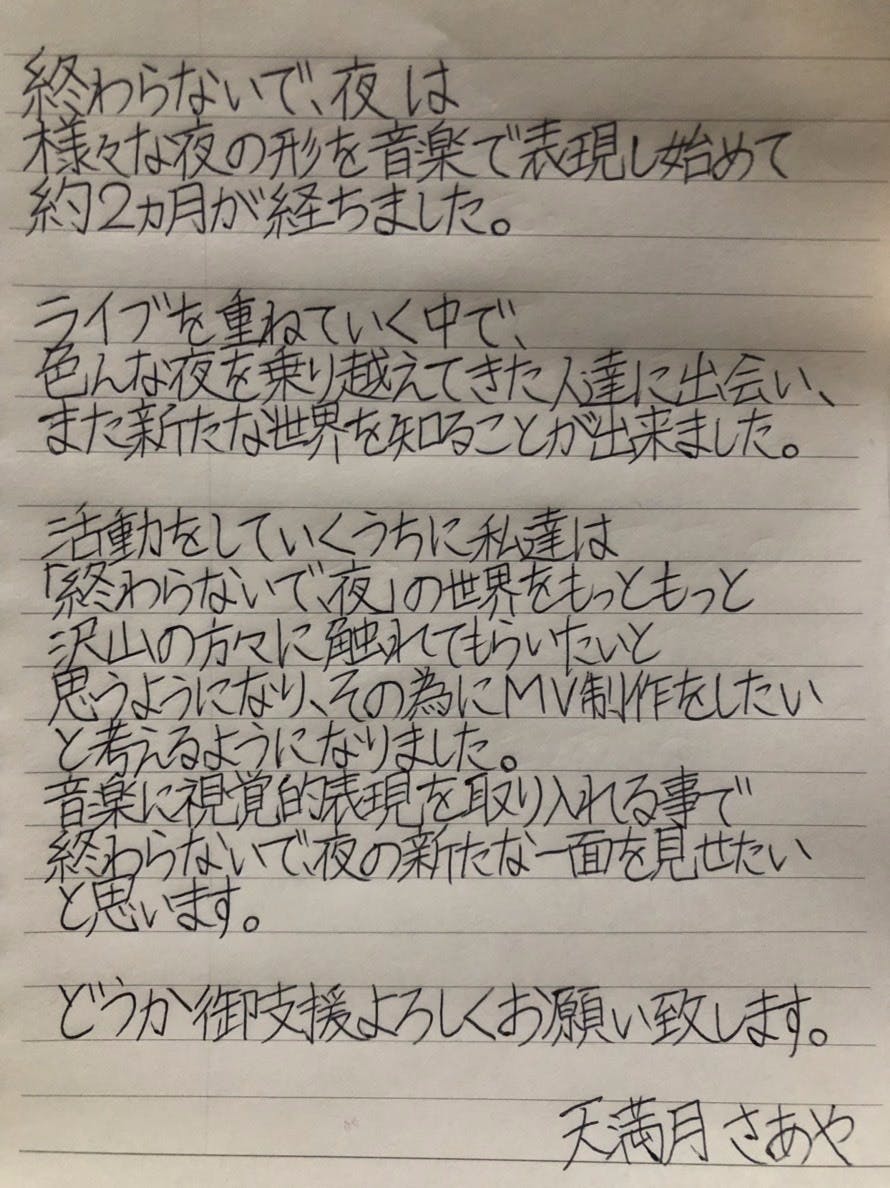 終わらないで、夜 は
様々な夜の形を音楽で表現し始めて
約2ヵ月が経ちました。
ライブを重ねていく中で、
色んな夜を乗り越えてきた人達に出会い、
また新たな世界を知ることが出来ました。
活動をしていくうちに私達は
「終わらないで、夜」の世界をもっともっと
沢山の方々に触れてもらいたいと
思うようになり、その為にMV制作をしたい
と考えるようになりました。
音楽に視覚的表現を取り入れる事で
終わらないで、夜の新たな一面を見せたい
と思います。
どうか御支援よろしくお願い致します。
天満月 さあや